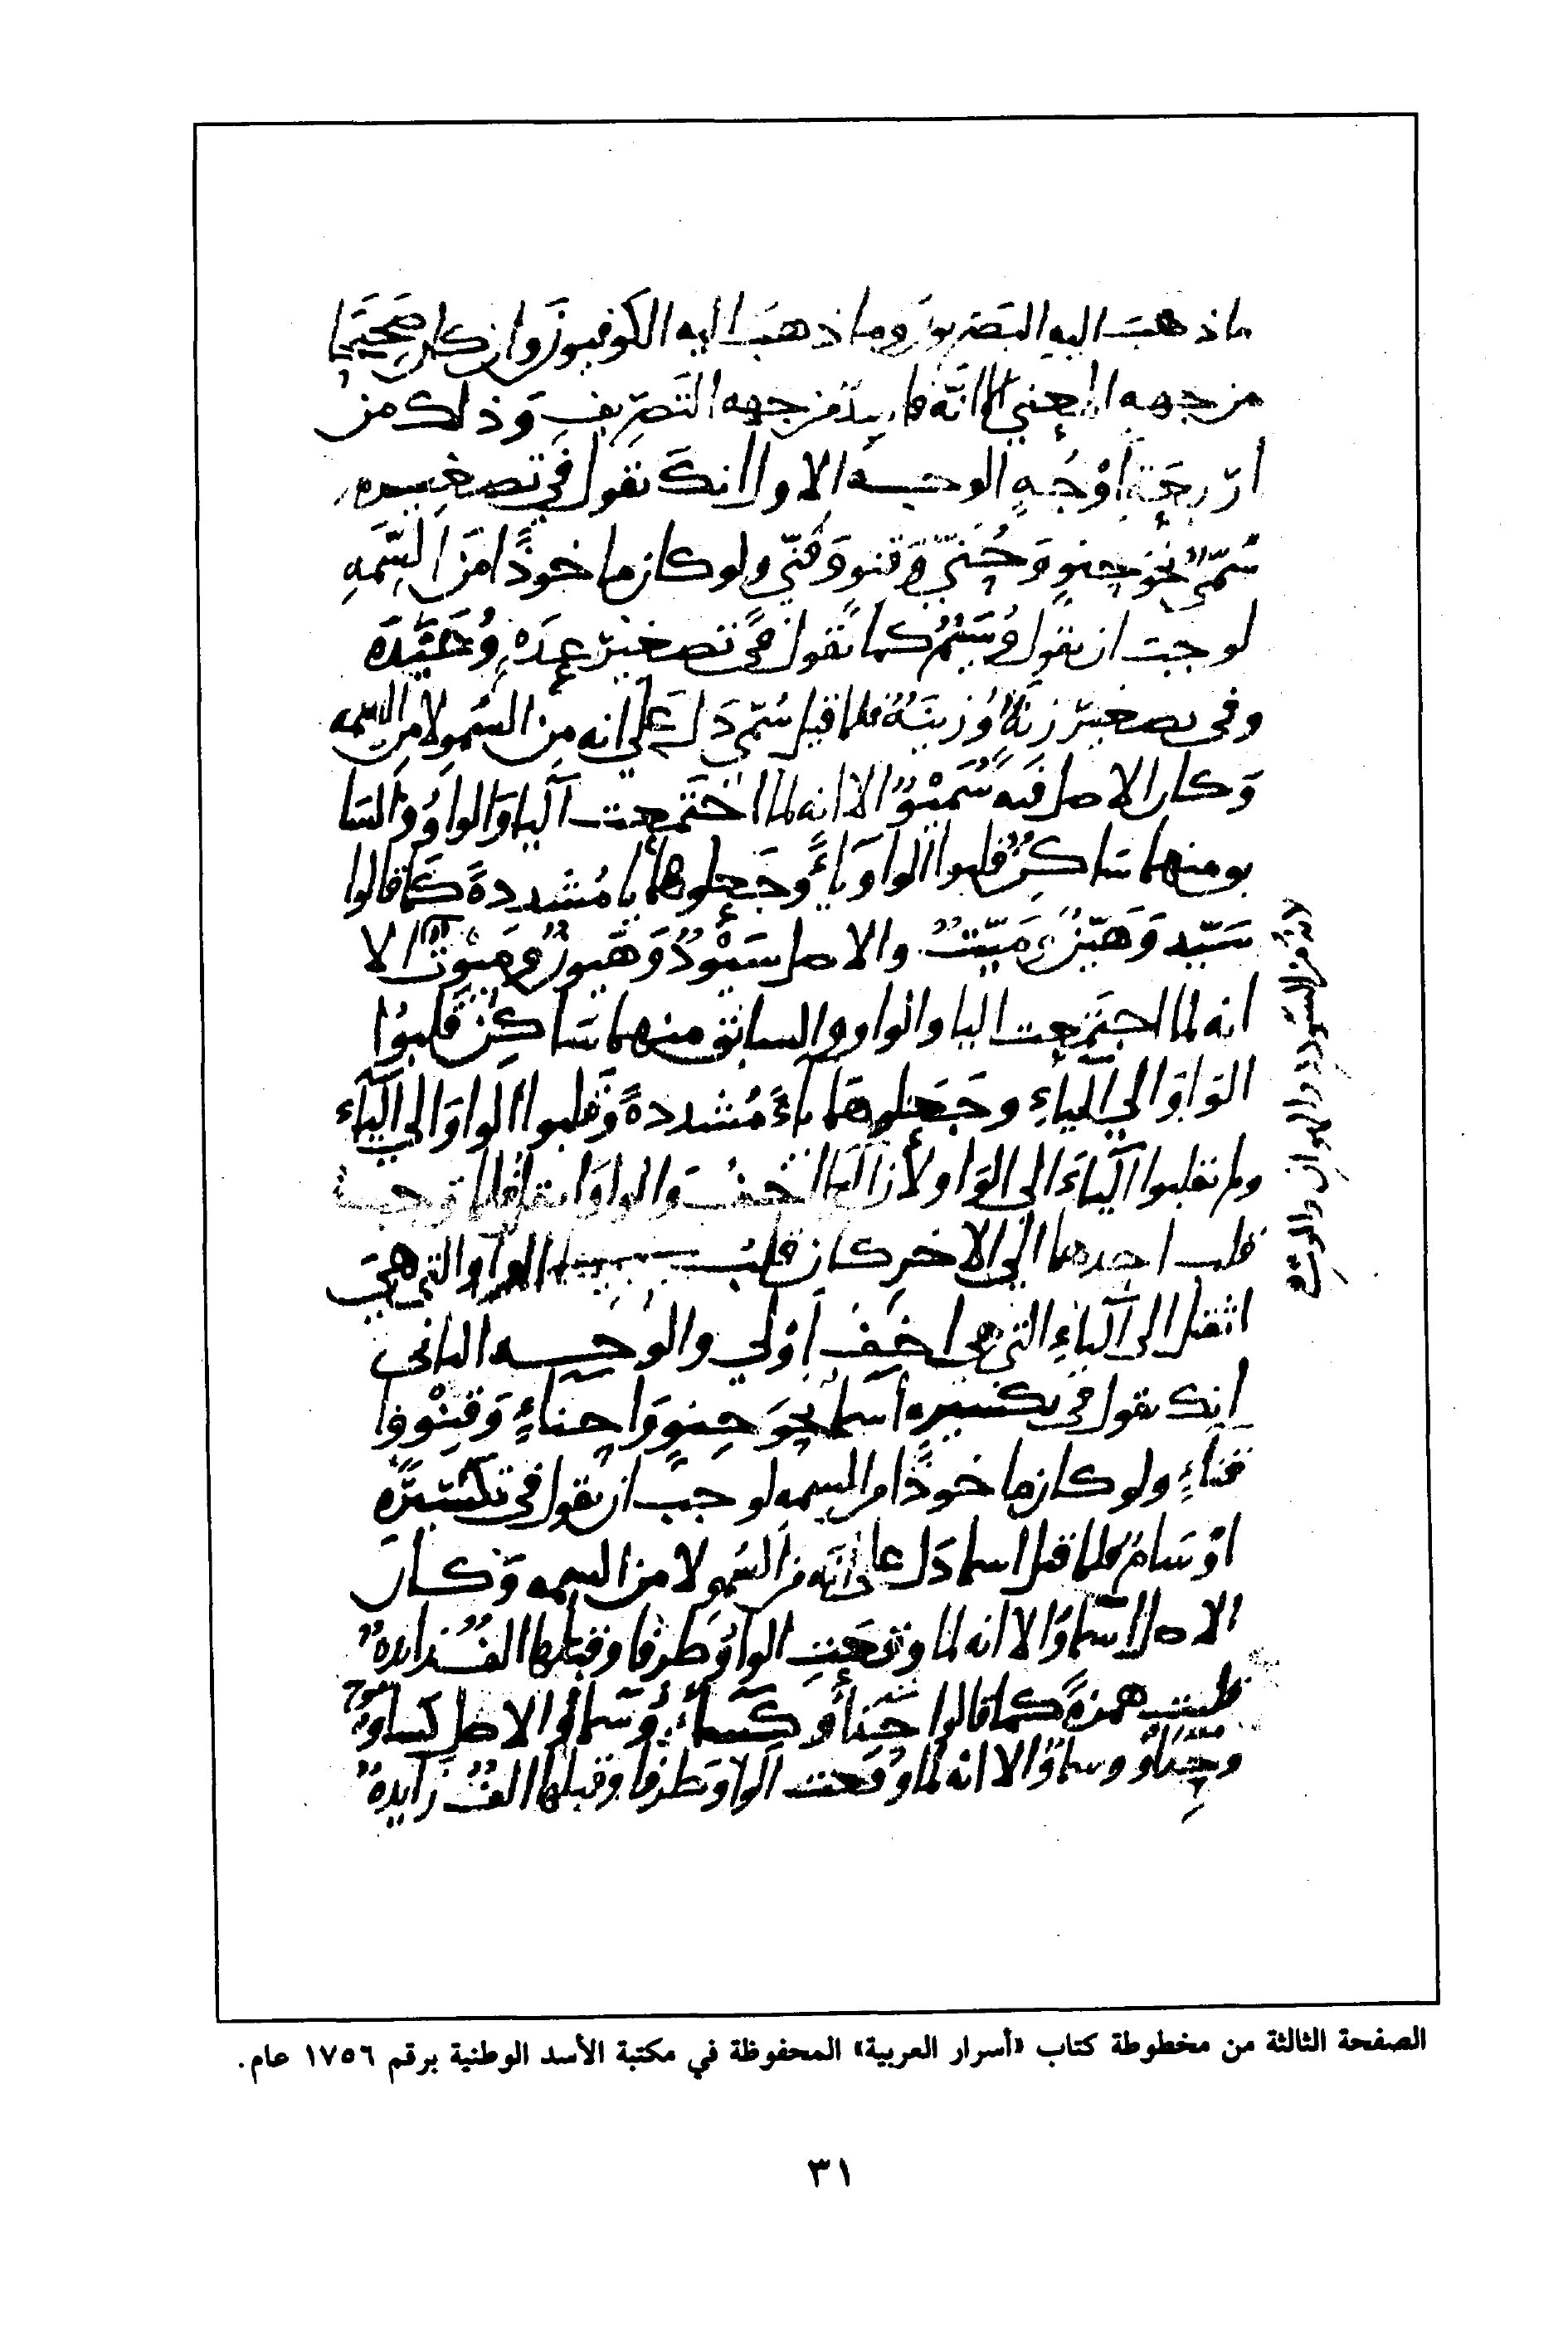 ما ذهب اليه البصريون وما ذهبَ اليه الكوفيون وان كان صَحِيحًا
من جهه المعنى الا انّه فاسِدٌ من جهه التَصّرِيفِ وَذلك من
أرْبعَةِ أوْجُهٍ الوجه الاول انكَ تقول في تصغيره
سُمَيٌّ نحو حِنوٍ وَحُنَيٌّ وَقنوٍ وَقُنيّ ولو كان ماخوذًا مَنَ السِّمَهِ
لوجبَ ان تقول وُسَيْمٌ كما تَقول في تصغير عِدَهٍ وُعَيْدَه
وفي تصغير زنَةٍ وُزيْنَةٌ فلما قيل سُمّي دَلَ عَلى انه مِن السُموِ لا من السِمه
وَكان الاصل فيه سُمَيْوٌ الا انه لما اجتَمعت اليا وَالواوُ وَالسَا
بق منهما سَاكِنٌ قلبوا الواوَ ياءً وجَعلوهما يا مُشددةً كَما قالوا
سَيّد وَهَيّنٌ وَمَيّتٌ والاصل سَيْودٌ وَهَيْونٌ وَمَيْوتٌ الا
انه لما اجتمَعت اليا والواو والسابق منهما سَاكِنٌ قلبوُا
الوَاوَ الي الياءِ وجَعَلوهمَا ياءً مُشددةً وَقلبوا الواوَ الي الياء
ولم تقلبوا الياءَ الى الوَاو لأن اليا اخفُ وَالواوَ اثقل فلما وجب
قلب احدهما الي الاخرِ كان قلبُ الواو التي هيَ
اثقل الى الياءِ التي هي اخفُ أوْلي والوَجه الثاني
انك تقول في تكسيره أسماءٌ نحوَ حِنوٍ وَاحنَاءٍ وَقِنْوٍ وا
قناءٍ ولو كان ماخوذًا من السِمه لوجبَ ان تقول في تكسيرِه
اوْسَامٌ فلما قيل اسما دَل على انَه من السُموِ لا من السمه وَكان
الاصل اسمَاوٌ الا انه لما وقعَتِ الواوُ طرفا وقبلها الفٌ زايدهٌ
قلبت همزةً كما قالوا حِنَاءٌ وَكسَاءٌ وَسَمَاءٌ والاصل كساوٌ
وحِنَاوٌ وسماوٌ الا انه لما وُقعت الواو طرفا وقبلها الفٌ زايدهٌ
لانه من السودد والهوان والموت
الصفحة الثالثة من مخطوطة كتاب «أسرار العربية» المحفوظة في مكتبة الأسد الوطنية برقم ١٧٥٦ عام.
٣١